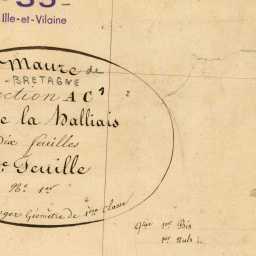 Ille-et-Vilaine
Maure de
BRETAGNE
ection A C 1 2
e la Halliais
Dix feuilles
Feuille
No. 1er
Géomètre de 1ère Classe
1er Bis
1er